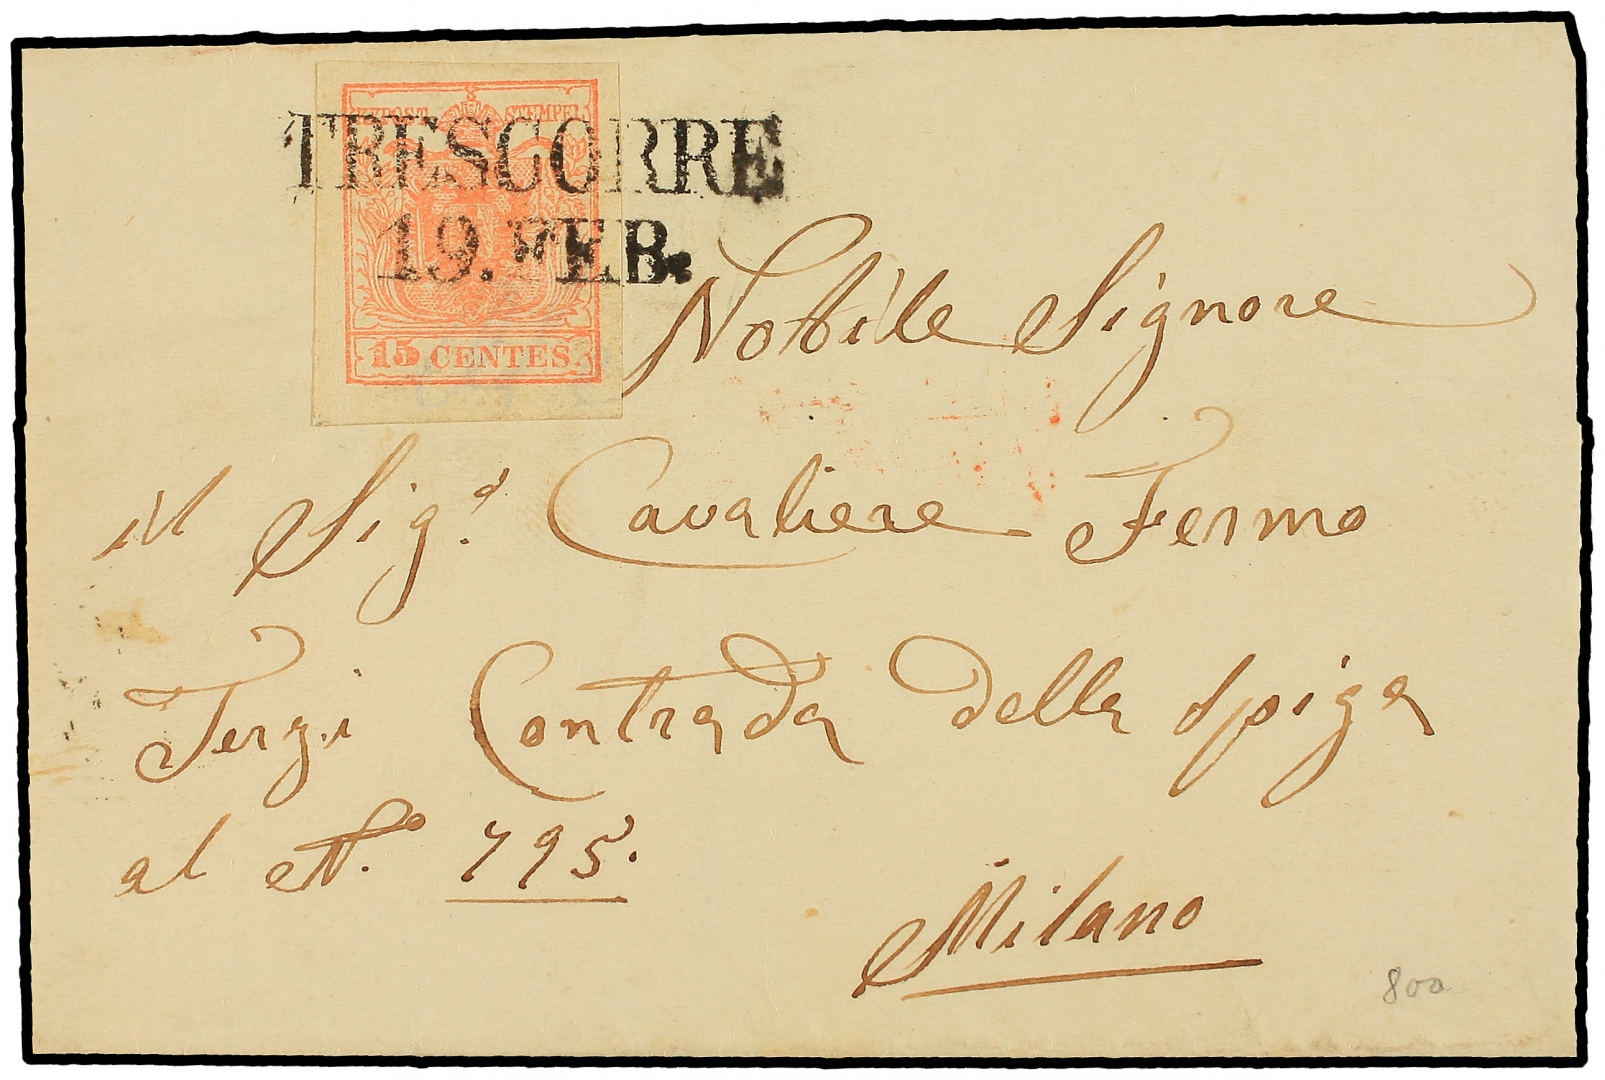 KKPOST STEMPEL
TRESCORRE
19. FEB.
15 CENTES.
Nobile Signore
il Sig.r Cavaliere Fermo
Terzi Contrada della Spiga
al N.o 795.
Milano
800